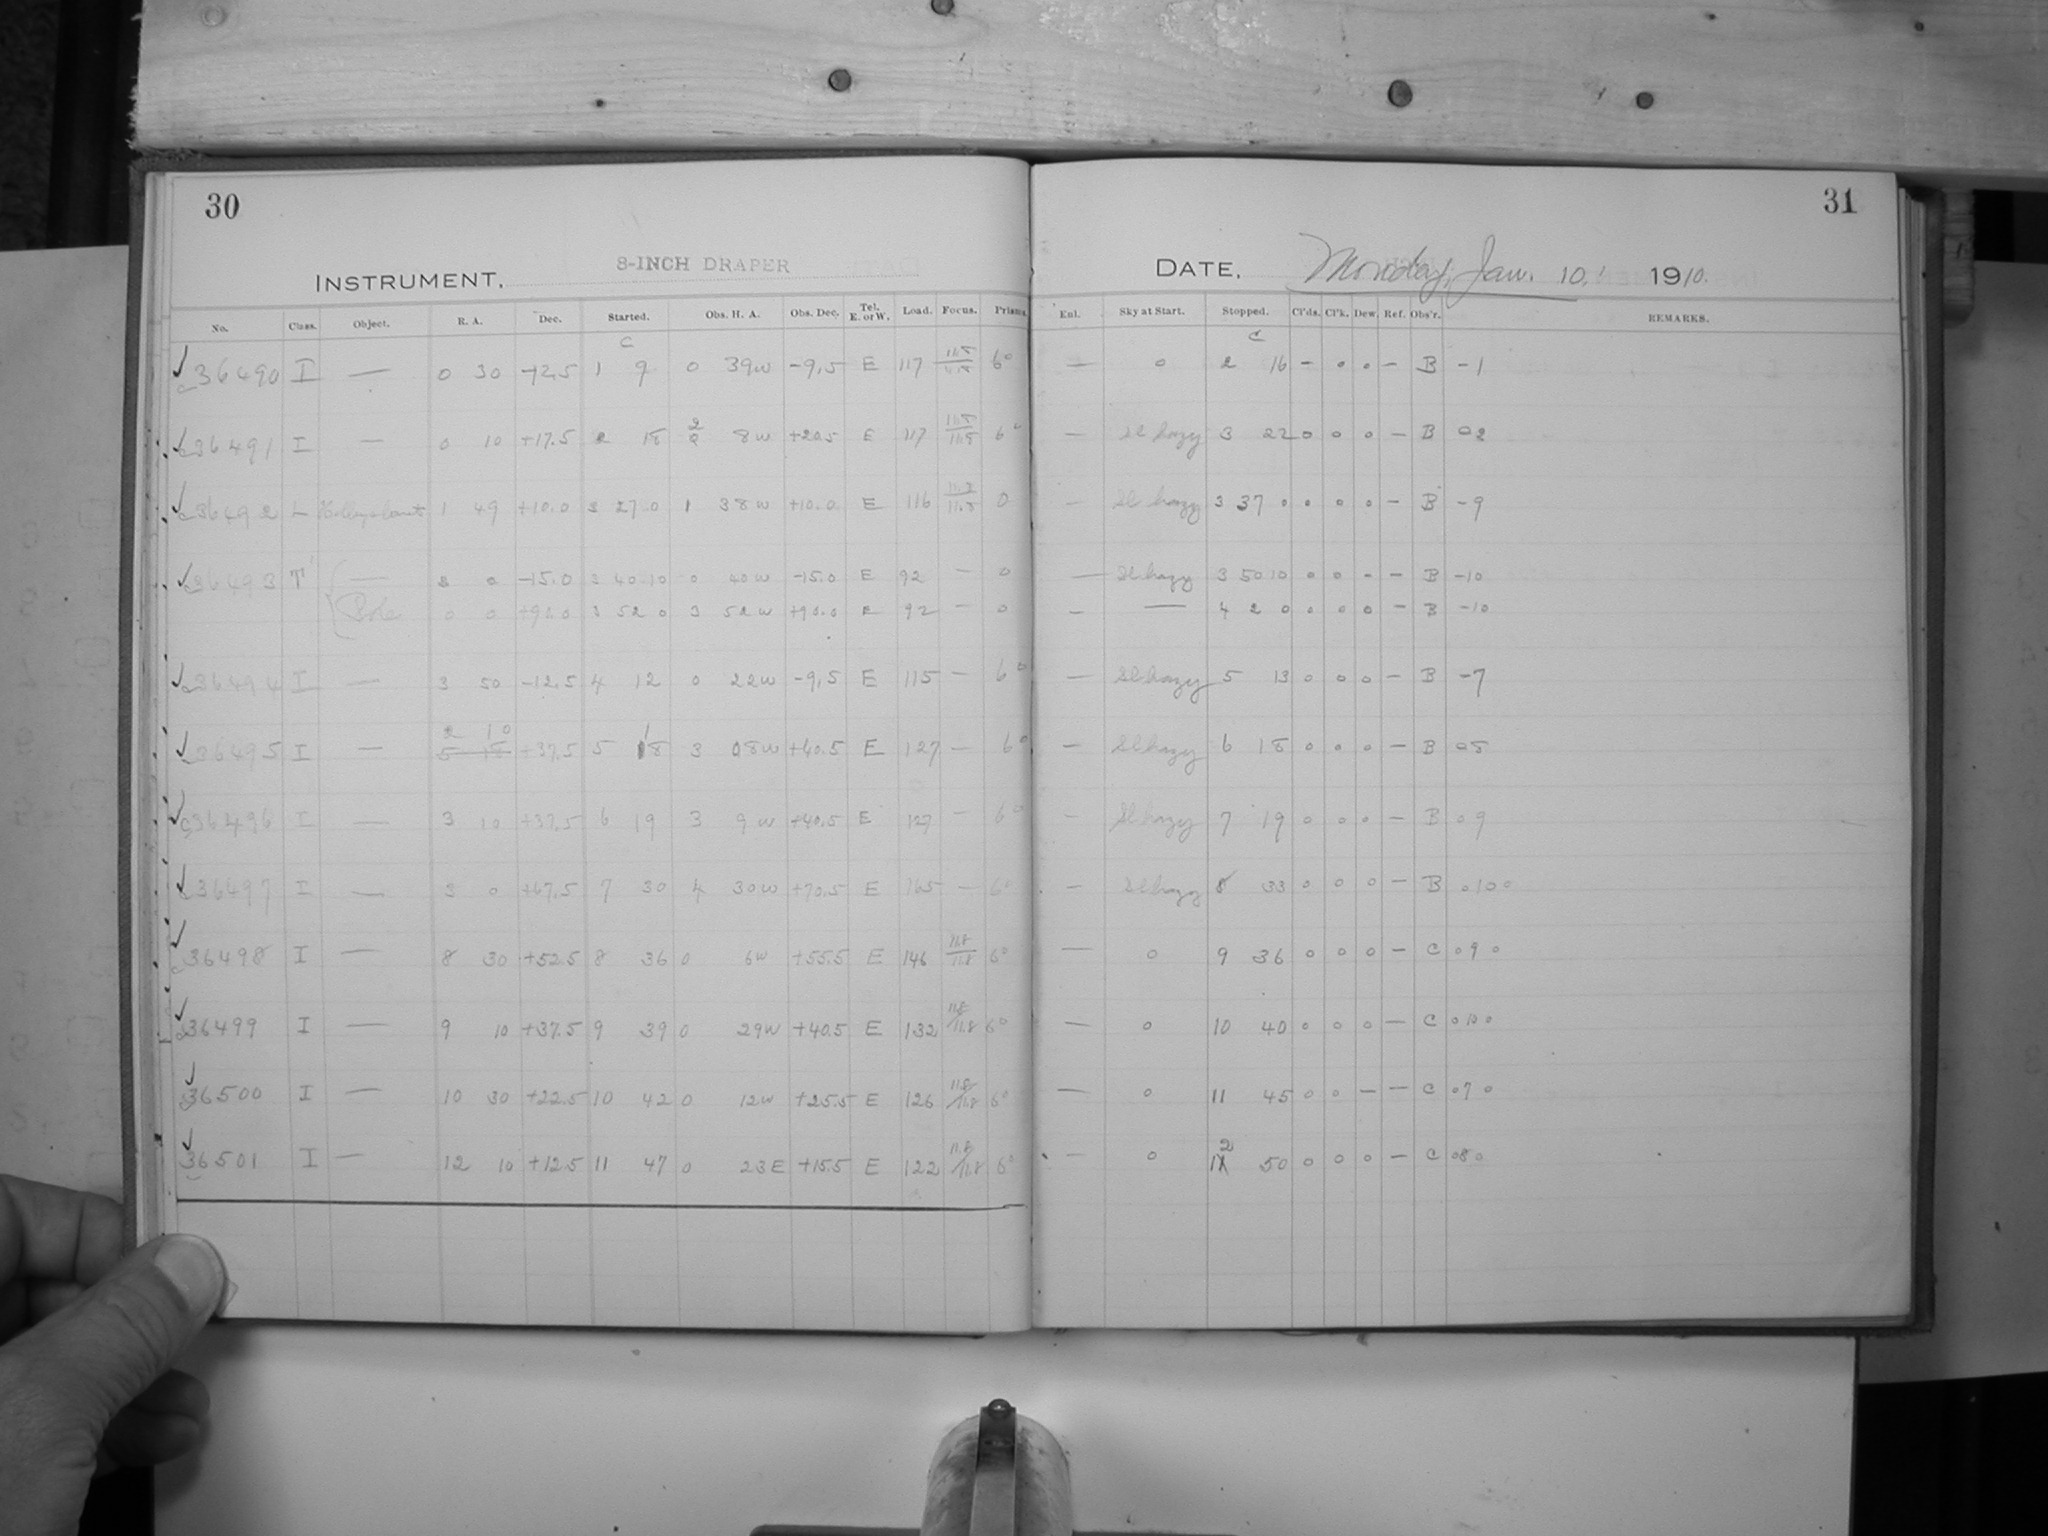 30
INSTRUMENT. 8-INCH DRAPER
No. Class. Object. R. A. Dec. Started. Obs. H. A. Obs. Dec. Tel. E. or W. Load. Focus. Prism.
C
36490 I — 0 30 -12.5 1 9 0 39w -9.5 E 117 6°
36491 I — 0 10 +17.5 2 15 8w +20.5 E 117 11.5 11.5 6°
36492 L 1 49 +10.0 3 27.0 1 38w +10.0 E 116 11.5 0
36493 T — 3 0 -15.0 3 40 10 0 40w -15.0 E 92 — 0
Pole 0 0 +90.0 3 52 0 3 52w +90.0 E 92 — 0
36494 I — 3 50 -12.5 4 12 0 22w -9.5 E 115 — 6°
2 10
36495 I — 5 18 +37.5 5 18 3 08w +40.5 E 127 — 6°
36496 I — 3 10 +37.5 6 19 3 9w +40.5 E 127 — 6°
36497 I — 3 0 +67.5 7 30 4 30w +70.5 E 165 — 6°
36498 I — 8 30 +52.5 8 36 0 6w +55.5 E 146 11.8 11.8 6°
36499 I — 9 10 +37.5 9 39 0 29w +40.5 E 132 11.8 11.8 6°
36500 I — 10 30 +22.5 10 42 0 12w +25.5 E 126 11.8 11.8 6°
36501 I — 12 10 +12.5 11 47 0 23E +15.5 E 122 11.8 11.8 6°
31
DATE. Monday, Jan. 10, 1910.
Exl. Sky at Start. Stopped. Cl'ds. Cl'k. Dew. Ref. Obs'r. REMARKS.
C
— 0 2 16 - 0 0 - B -1
— Sl hazy 3 22 0 0 0 - B 02
- Sl hazy 3 37 0 0 0 0 - B -9
— Sl hazy 3 50 10 0 0 - - B -10
- — 4 2 0 0 0 0 - B -10
— Sl hazy 5 13 0 0 0 - B -7
- Sl hazy 6 18 0 0 0 - B 08
- Sl hazy 7 19 0 0 0 - B 09
- Sl hazy 8 33 0 0 0 - B 010 0
— 0 9 36 0 0 0 - C 09 0
— 0 10 40 0 0 0 - C 010 0
— 0 11 45 0 0 - - C 07 0
2
— 0 50 0 0 0 - C 08 0